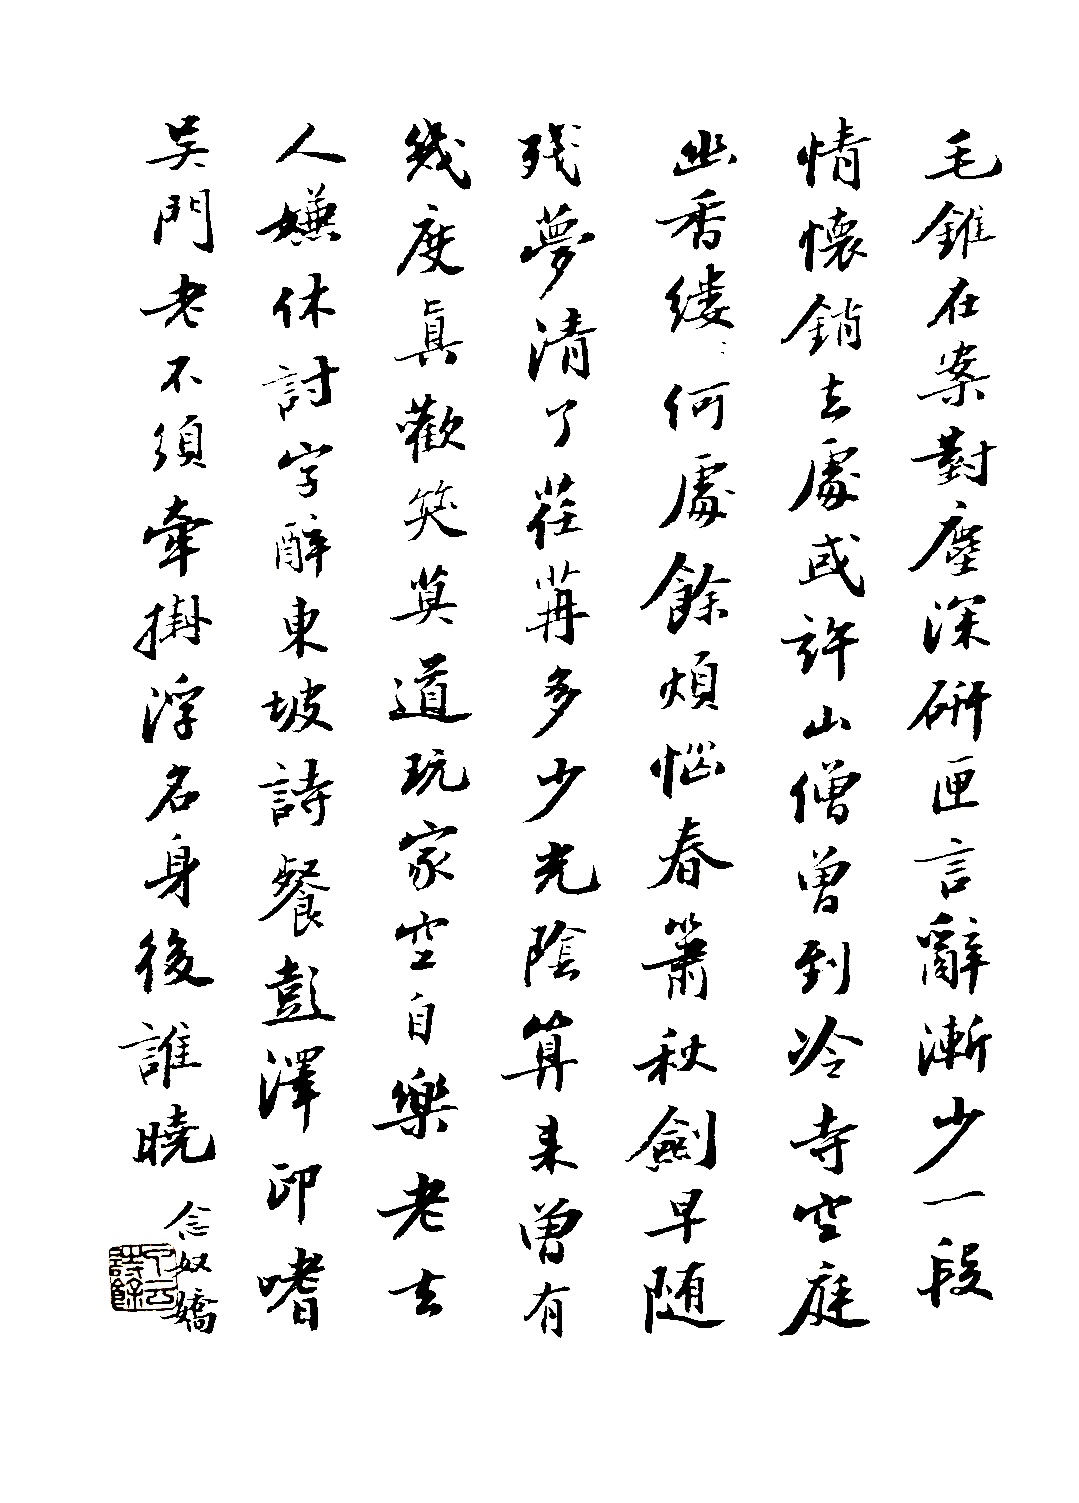 毛錐在案對塵深硏匣言辭漸少一段
情懷銷去處或許山僧曾到冷寺空庭
幽香缕〻何處餘煩惱春簫秋劍早随
残夢清了荏苒多少光陰算来曾有
幾度真歡笑莫道玩家空自樂老去
人嫌休討字醉東坡詩餐彭澤印嗜
吴門老不須牽掛浮名身後誰曉
念奴嬌